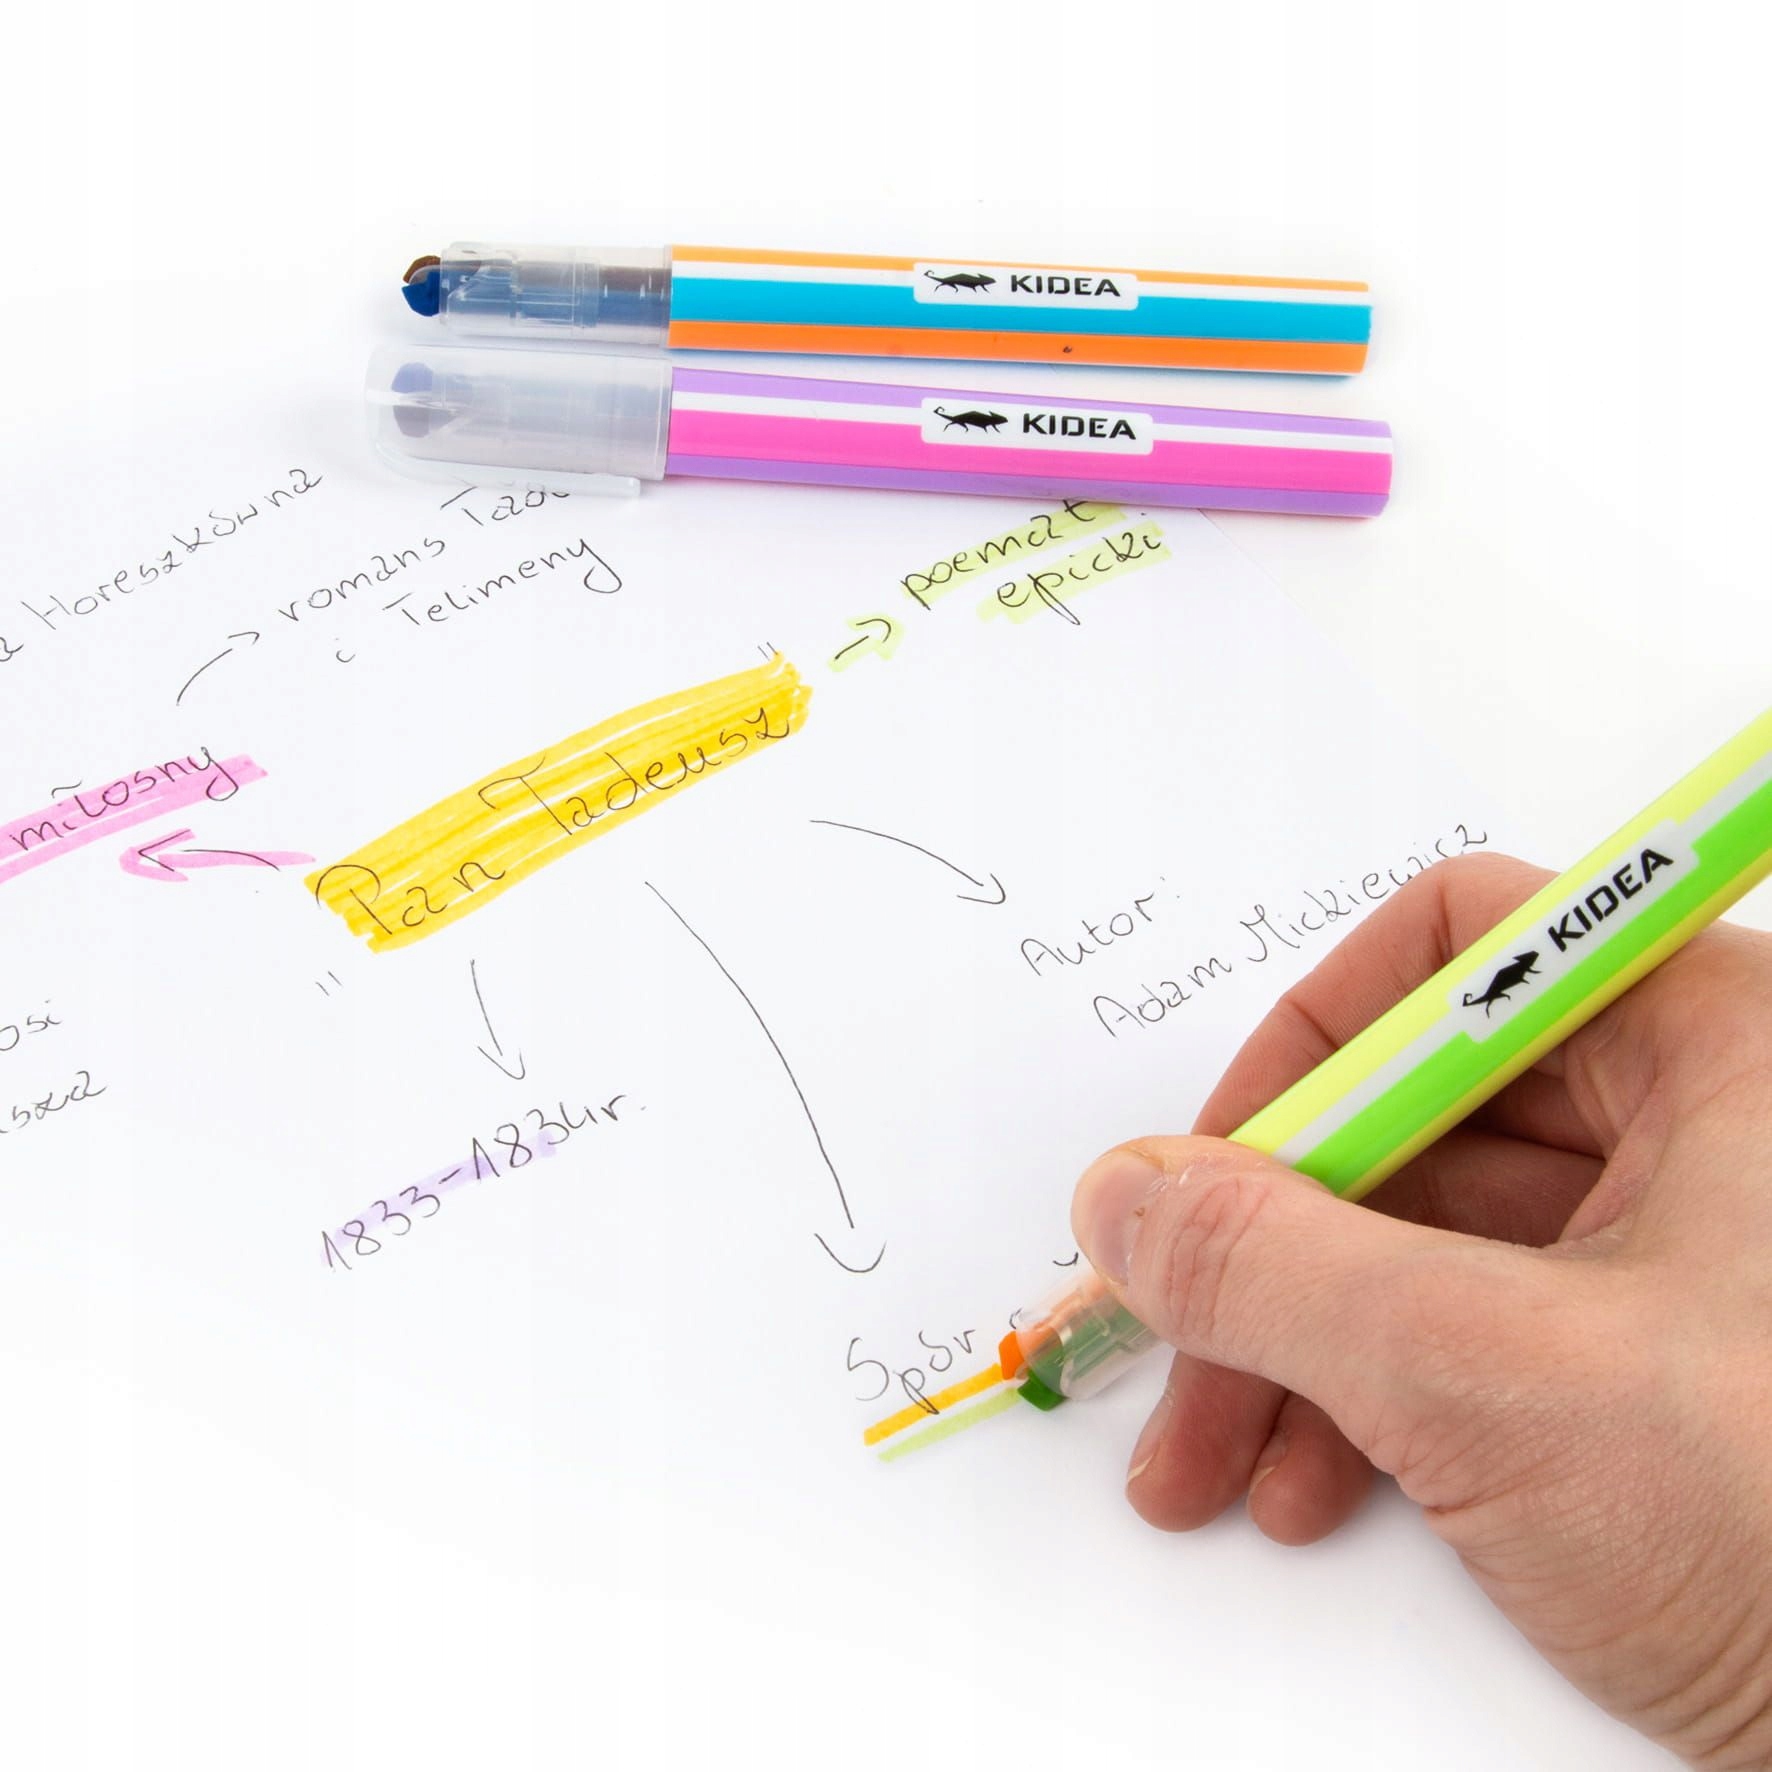 KIDEA
KIDEA
Horeszkówna
romans
i Telimeny
poemat
epicki
miłosny
"Pan Tadeusz"
Autor:
Adam Mickiewicz
KIDEA
1833-1834r.
Spór